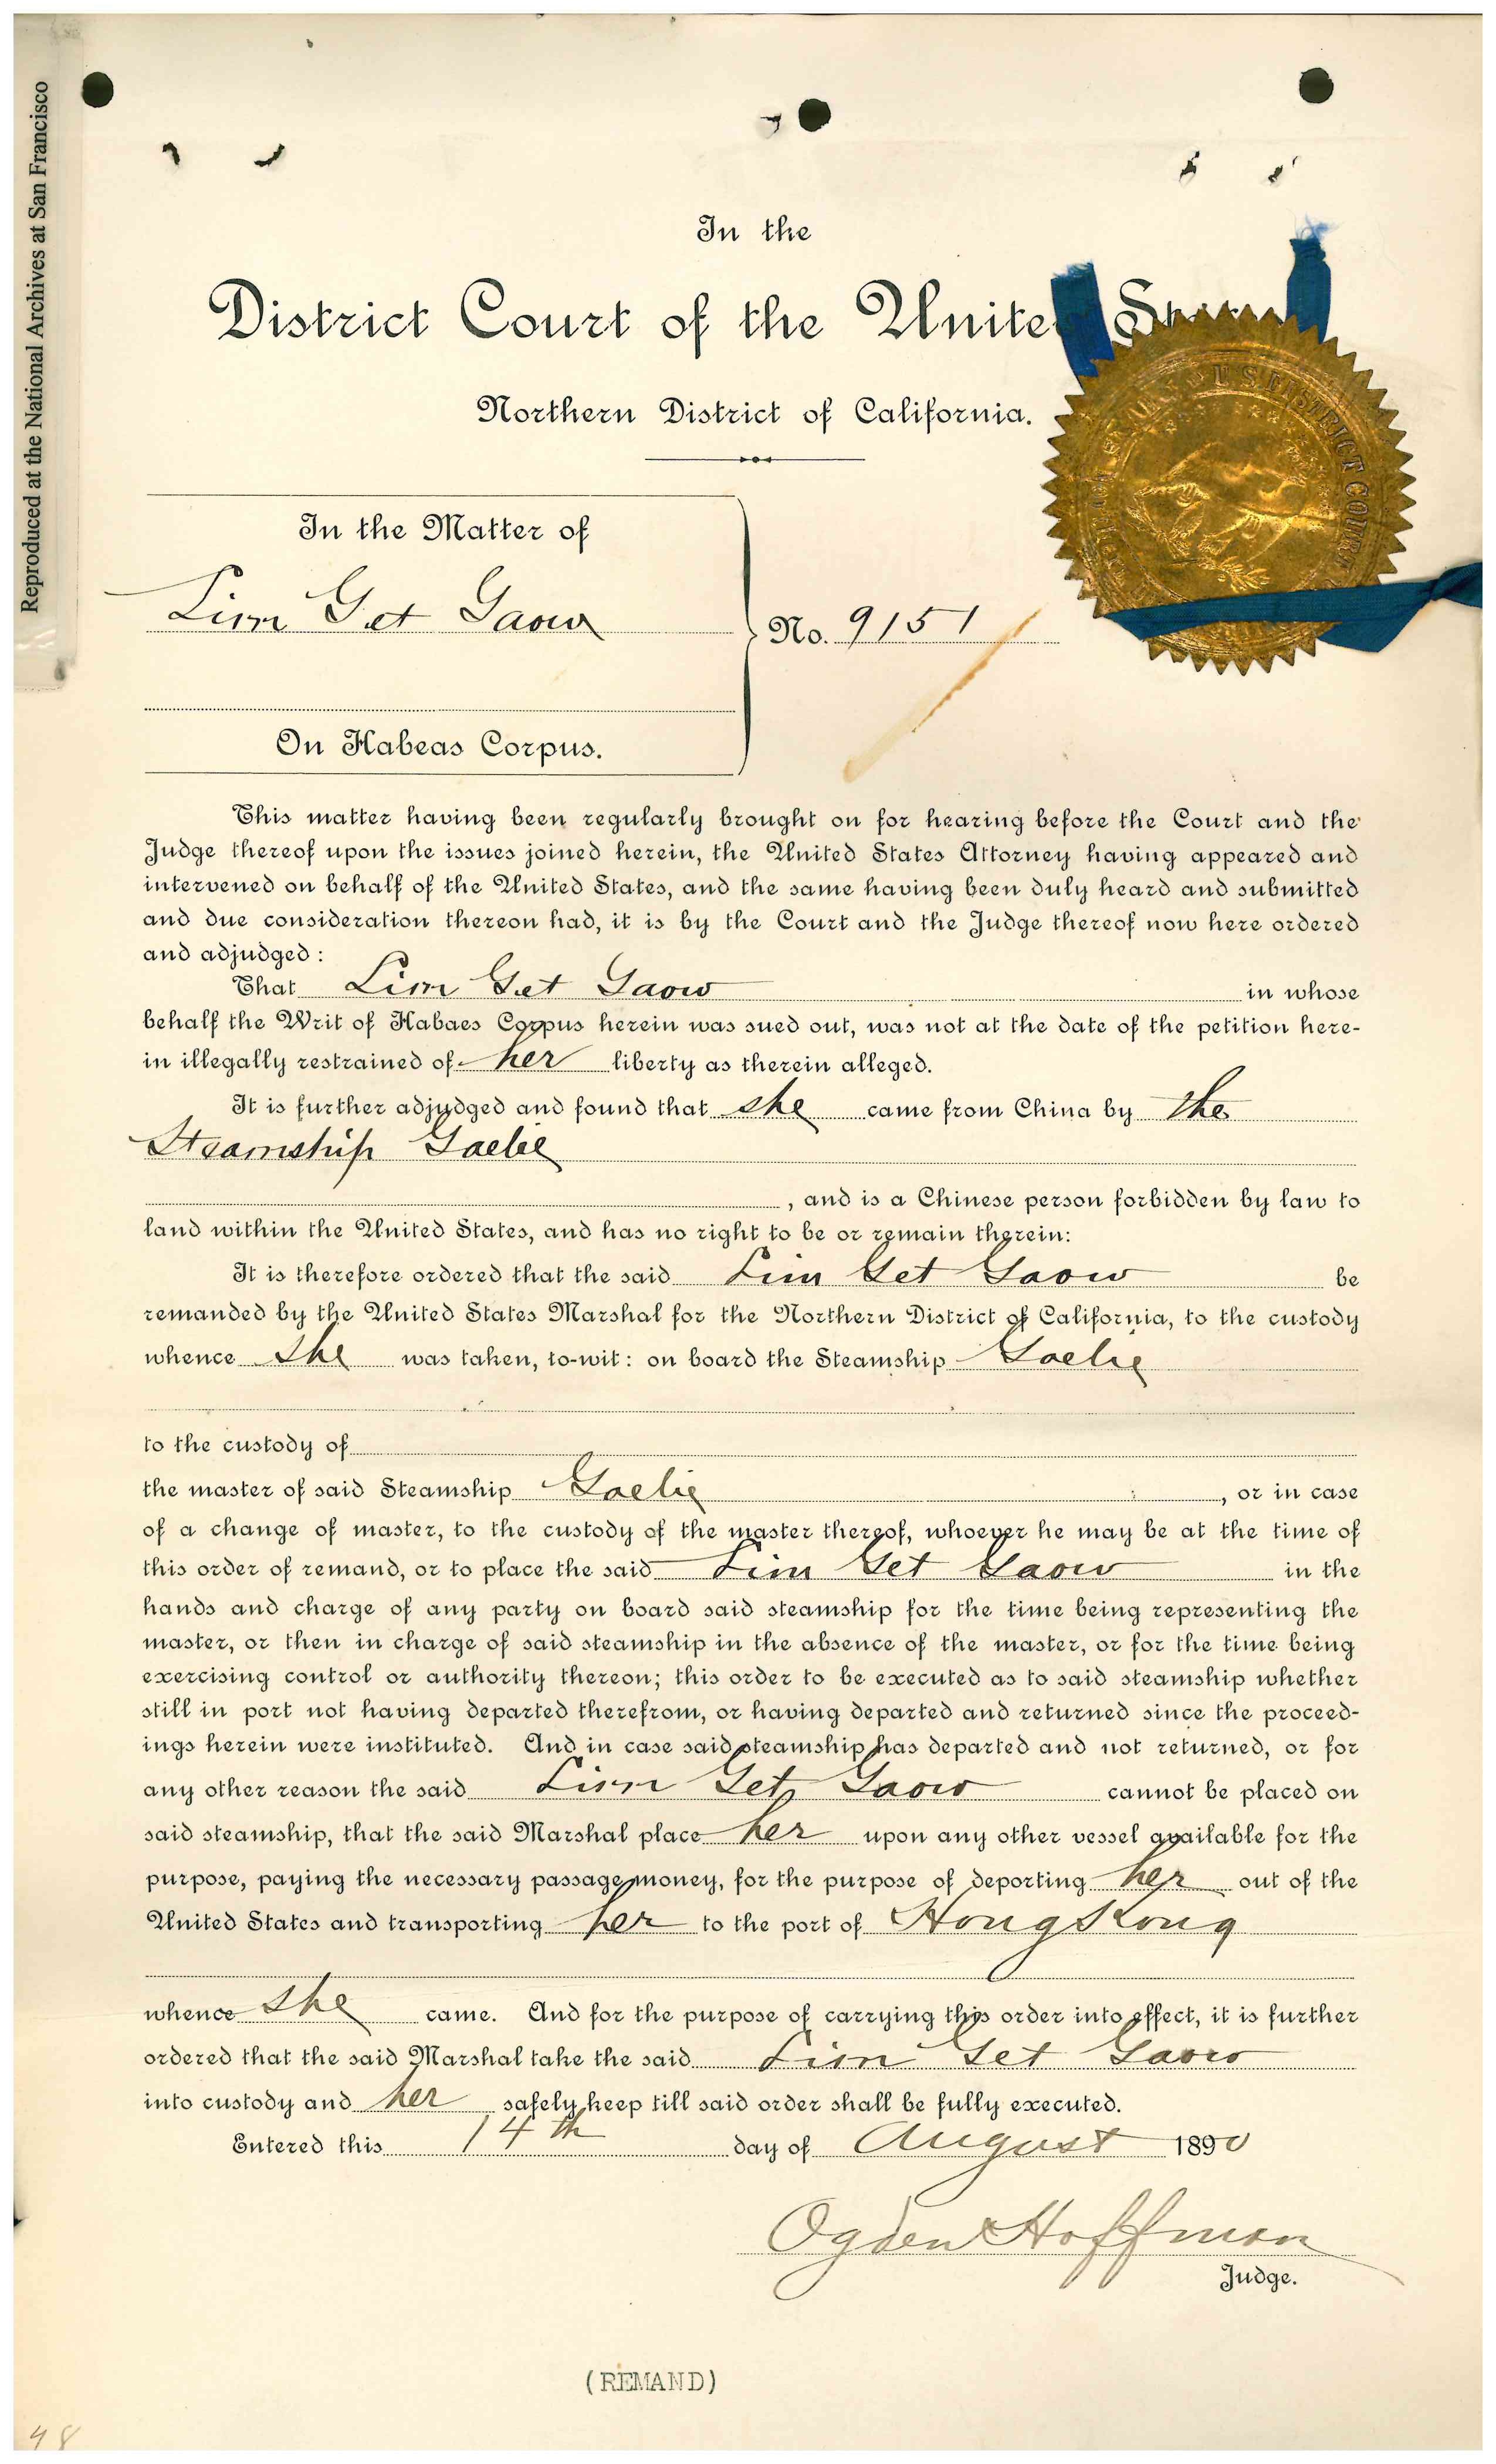 Reproduced at the National Archives at San Francisco
In the
District Court of the United Sta
Northern District of California.
U.S. DISTRICT COURT
In the Matter of
Lim Get Gaow
No. 9151
On Habeas Corpus.
This matter having been regularly brought on for hearing before the Court and the
Judge thereof upon the issues joined herein, the United States Attorney having appeared and
intervened on behalf of the United States, and the same having been duly heard and submitted
and due consideration thereon had, it is by the Court and the Judge thereof now here ordered
and adjudged:
That Lim Get Gaow in whose
behalf the Writ of Habaes Corpus herein was sued out, was not at the date of the petition here-
in illegally restrained of her liberty as therein alleged.
It is further adjudged and found that she came from China by the
Steamship Gaelic
, and is a Chinese person forbidden by law to
land within the United States, and has no right to be or remain therein:
It is therefore ordered that the said Lim Get Gaow be
remanded by the United States Marshal for the Northern District of California, to the custody
whence she was taken, to-wit: on board the Steamship Gaelic
to the custody of
the master of said Steamship Gaelic, or in case
of a change of master, to the custody of the master thereof, whoever he may be at the time of
this order of remand, or to place the said Lim Get Gaow in the
hands and charge of any party on board said steamship for the time being representing the
master, or then in charge of said steamship in the absence of the master, or for the time being
exercising control or authority thereon; this order to be executed as to said steamship whether
still in port not having departed therefrom, or having departed and returned since the proceed-
ings herein were instituted. And in case said steamship has departed and not returned, or for
any other reason the said Lim Get Gaow cannot be placed on
said steamship, that the said Marshal place her upon any other vessel available for the
purpose, paying the necessary passage money, for the purpose of deporting her out of the
United States and transporting her to the port of Hong Kong
whence she came. And for the purpose of carrying this order into effect, it is further
ordered that the said Marshal take the said Lim Get Gaow
into custody and her safely keep till said order shall be fully executed.
Entered this 14th day of August 1890
Ogden Hoffman
Judge.
(REMAND)
48